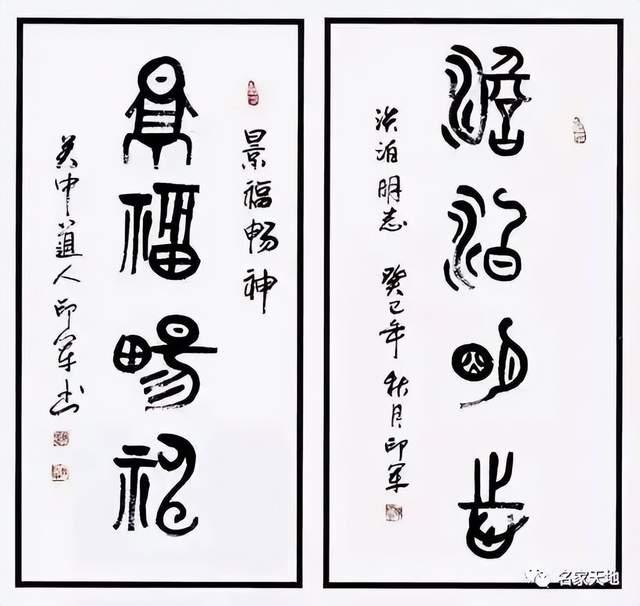 澹泊明志
淡泊明志 癸巳年 秋月印军
景福畅神
景福暢神
关中道人印军书
名家天地